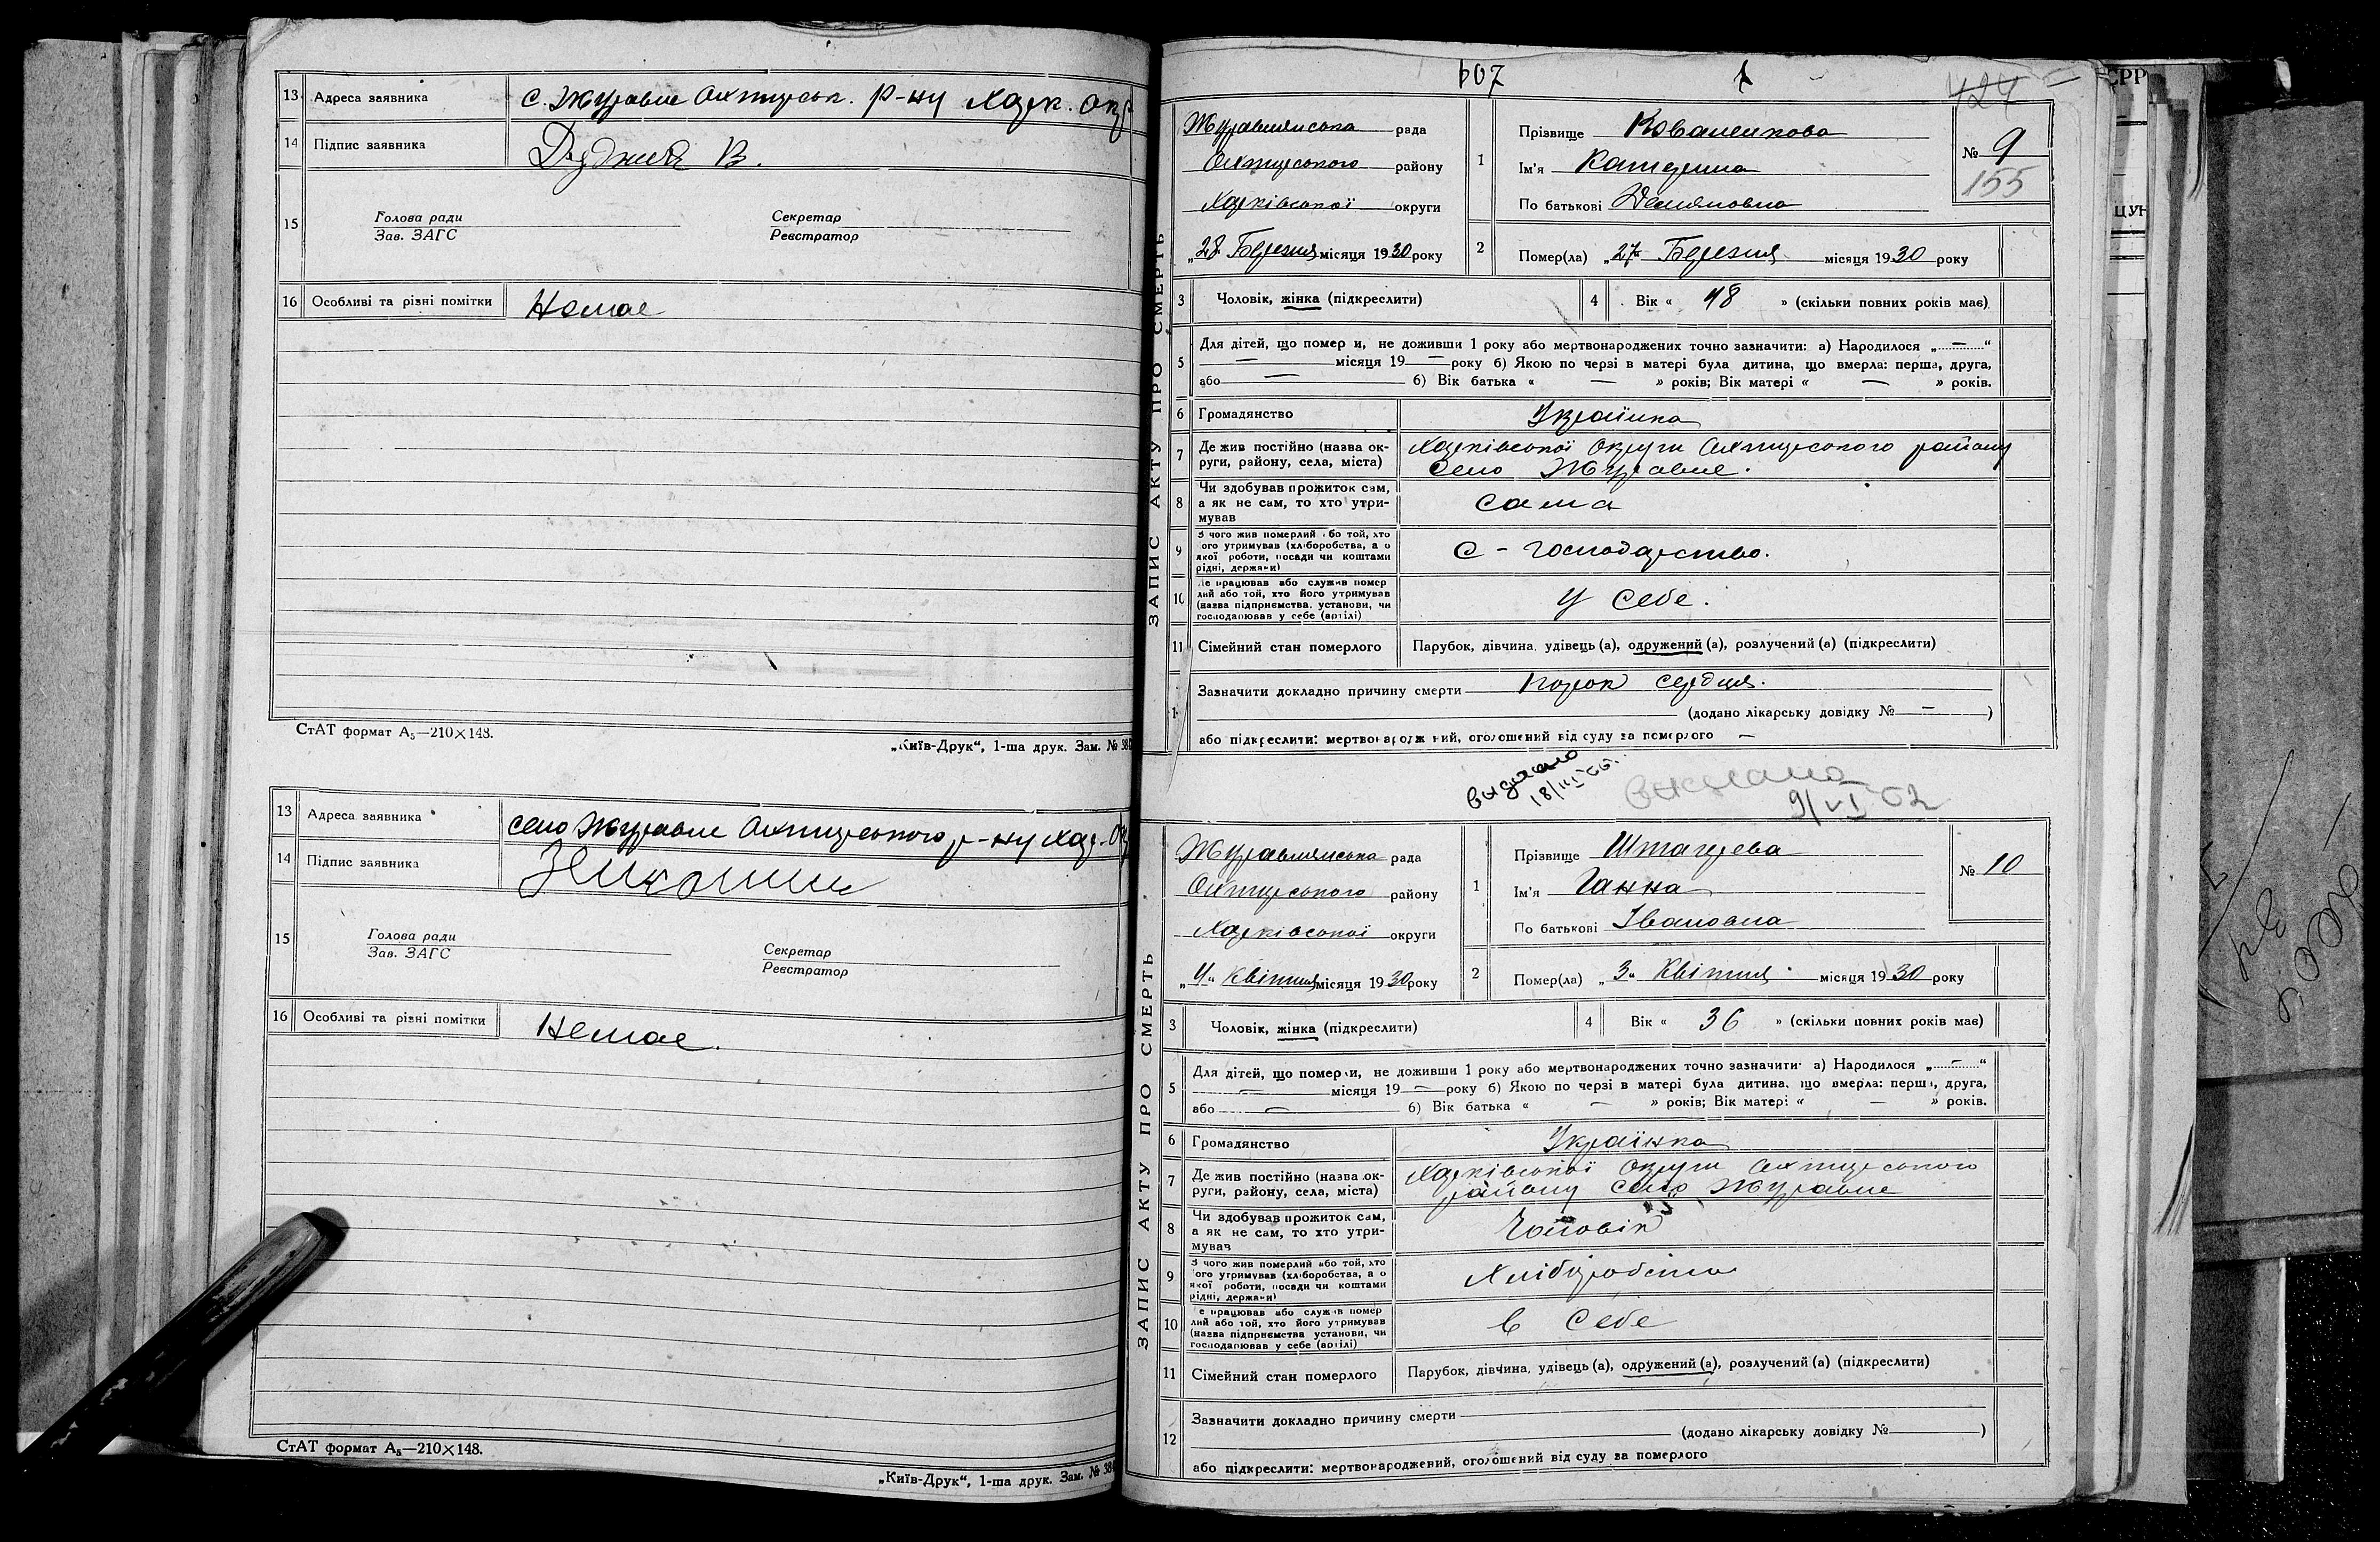 13 Адреса заявника с. Журавне Охтирськ. р-ну Харк. окр
14 Підпис заявника
15 Голова ради
Зав. ЗАГС
Секретар
Реєстратор
16 Особливі та різні помітки Немає
СтАТ формат А5—210×148.
„Київ-Друк“, 1-ша друк. Зам. №
13 Адреса заявника село Журавне Охтирського р-ну Хар. Ок
14 Підпис заявника
15 Голова ради
Зав. ЗАГС
Секретар
Реєстратор
16 Особливі та різні помітки Немає.
СтАТ формат А5—210×148.
„Київ-Друк“, 1-ша друк. Зам. №
607
424
ЗАПИС АКТУ ПРО СМЕРТЬ
Журавлянська рада
Охтирського району
Харківської округи
„28 Березня місяця 1930 року
1 Прізвище Коваленкова
Ім'я Катерина
По батькові Демяновна
№ 9
155
2 Помер(ла) „27“ Березня місяця 1930 року
3 Чоловік, жінка (підкреслити)
4 Вік « 48 » (скільки повних років має)
5 Для дітей, що помер и, не доживши 1 року або мертвонароджених точно зазначити: а) Народилося „ — “
— місяця 19 — року б) Якою по черзі в матері була дитина, що вмерла: перша, друга,
або — б) Вік батька « — » років; Вік матері « — » років.
6 Громадянство Українка
7 Де жив постійно (назва ок-
руги, району, села, міста)
Харківської Округи Охтирського району
село Журавне.
8 Чи здобував прожиток сам,
а як не сам, то хто утри-
мував
сама
9 З чого жив померлий або той, хто
його утримував (хліборобства, а о
якої роботи, посади чи коштами
рідні, держави)
С - господарство.
10 Де працював або служив помер
лий або той, хто його утримував
(назва підприємства, установи, чи
господарював у себе (артілі)
У себе.
11 Сімейний стан померлого Парубок, дівчина, удівець (а), одружений (а), розлучений (а) (підкреслити)
1 Зазначити докладно причину смерти порок сердця.
(додано лікарську довідку № — )
або підкреслити: мертвонароджений, оголошений від суду за померлого —
18/III-66.
9/VI-62
ЗАПИС АКТУ ПРО СМЕРТЬ
Журавлянська рада
Охтирського району
Харківської округи
„4“ Квітня місяця 1930 року
1 Прізвище Штагерева
Ім'я Ганна
По батькові Івановна
№ 10
2 Помер(ла) „3“ Квітня місяця 1930 року
3 Чоловік, жінка (підкреслити)
4 Вік « 36 » (скільки повних років має)
5 Для дітей, що померли, не доживши 1 року або мертвонароджених точно зазначити: а) Народилося „ — “
— місяця 19 — року б) Якою по черзі в матері була дитина, що вмерла: перша, друга,
або — б) Вік батька « — » років; Вік матері « — » років.
6 Громадянство Українка
7 Де жив постійно (назва ок-
руги, району, села, міста)
Харківської Округи Охтирського
району село Журавне
8 Чи здобував прожиток сам,
а як не сам, то хто утри-
мував
Чоловік
9 З чого жив померлий або той, хто
його утримував (хліборобства, а о
якої роботи, посади чи коштами
рідні, держави)
Хліборобство
10 Де працював або служив помер
лий або той, хто його утримував
(назва підприємства установи, чи
господарював у себе (артілі)
в себе
11 Сімейний стан померлого Парубок, дівчина, удівець (а), одружений (а), розлучений (а) (підкреслити)
12 Зазначити докладно причину смерти
(додано лікарську довідку № )
або підкреслити: мертвонароджений, оголошений від суду за померлого